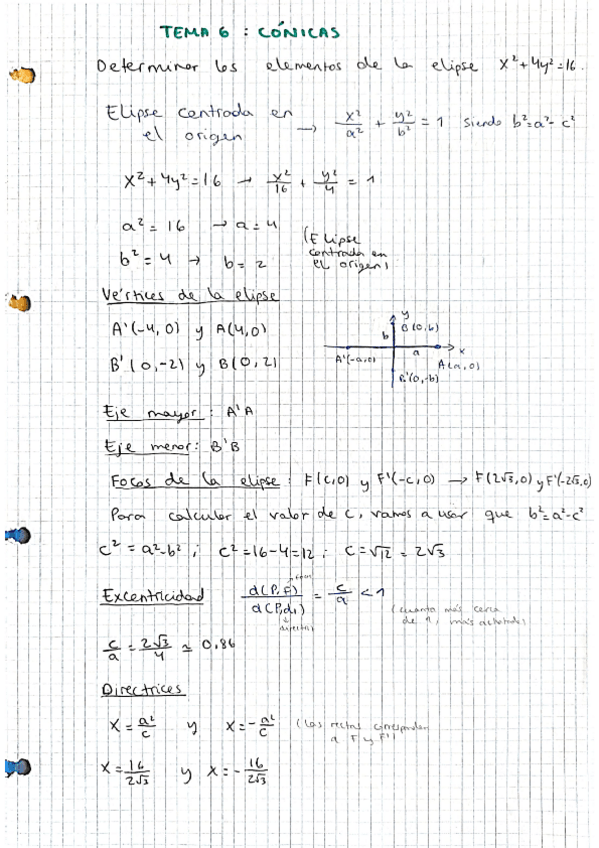 TEMA 6 : CÓNICAS
Determinar los elementos de la elipse x² + 4y² = 16.
Elipse centrada en el origen → x²/a² + y²/b² = 1 siendo b² = a² - c²
x² + 4y² = 16 → x²/16 + y²/4 = 1
a² = 16 → a = 4
b² = 4 → b = 2
(Elipse centrada en el origen)
Vértices de la elipse
A'(-4, 0) y A(4, 0)
B'(0, -2) y B(0, 2)
y
B(0, b)
b
a
x
A'(-a, 0)
A(a, 0)
B'(0, -b)
Eje mayor : A'A
Eje menor : B'B
Focos de la elipse : F(c, 0) y F'(-c, 0) → F(2√3, 0) y F'(-2√3, 0)
Para calcular el valor de c, vamos a usar que b² = a² - c²
c² = a² - b² ; c² = 16 - 4 = 12 ; c = √12 = 2√3
Excentricidad d(P, F)/d(P, d₁) = c/a < 1
directriz
(cuanto más cerca de 1, más achatada)
c/a = 2√3/4 ≃ 0,86
Directrices
x = a²/c y x = -a²/c (Las rectas corresponden a F y F')
x = 16/2√3 y x = -16/2√3